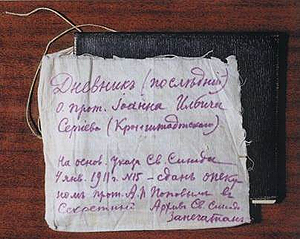 Дневникъ (послѣдній)
о. прот. Іоанна Ильича
Сергіева (Кронштадтскаго)
На основ. указа Св. Синода
4 янв. 1911 г. №15 – сданъ опеку
номъ прот. А. П. Поповымъ въ
Секретный Архивъ Св. Синода.
Запечатанъ